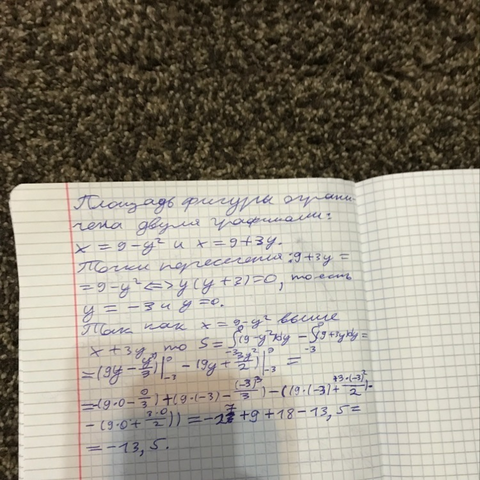 Площадь фигуры ограни-
чена двумя графиками:
x = 9-y² и x = 9+3y.
Точки пересечения: 9+3y =
= 9-y² <=> y(y+3)=0, то есть
y = -3 и y=0.
Так как x = 9-y² выше
x+3y, то S = ∫₋₃⁰(9-y²)dy - ∫₋₃⁰(9+3y)dy =
= (9y - y³/3)|₋₃⁰ - (9y + 3y²/2)|₋₃⁰ =
= (9·0 - 0/3) + (9·(-3) - (-3)³/3) - ((9·(-3) + 3·(-3)²/2) -
- (9·0 + 3·0/2)) = -27 + 9 + 18 - 13,5 =
= -13,5.